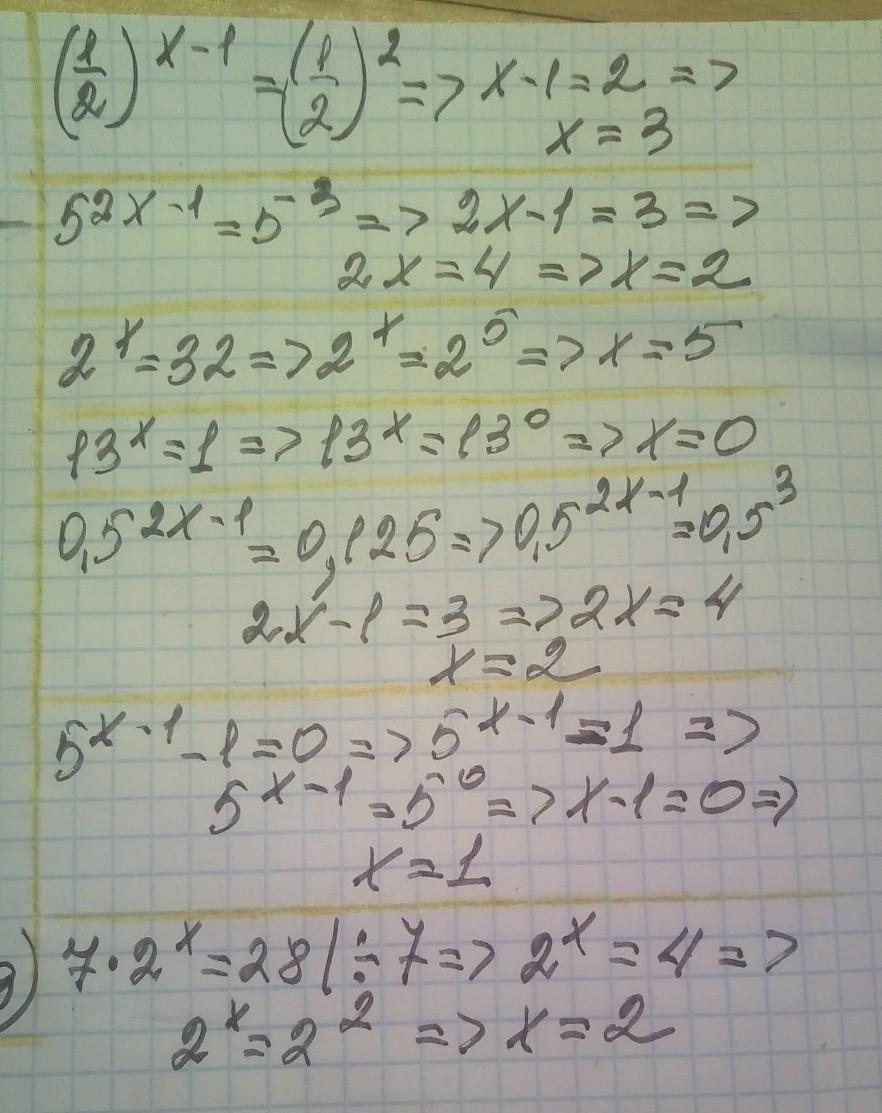 (1/2)^(x-1) = (1/2)^2 => x-1=2 =>
x=3
5^(2x-1) = 5^3 => 2x-1=3 =>
2x=4 => x=2
2^x=32 => 2^x=2^5 => x=5
13^x=1 => 13^x=13^0 => x=0
0,5^(2x-1) = 0,125 => 0,5^(2x-1) = 0,5^3
2x-1=3 => 2x=4
x=2
5^(x-1)-1=0 => 5^(x-1)=1 =>
5^(x-1)=5^0 => x-1=0 =>
x=1
) 7·2^x=28 | ÷7 => 2^x=4 =>
2^x=2^2 => x=2